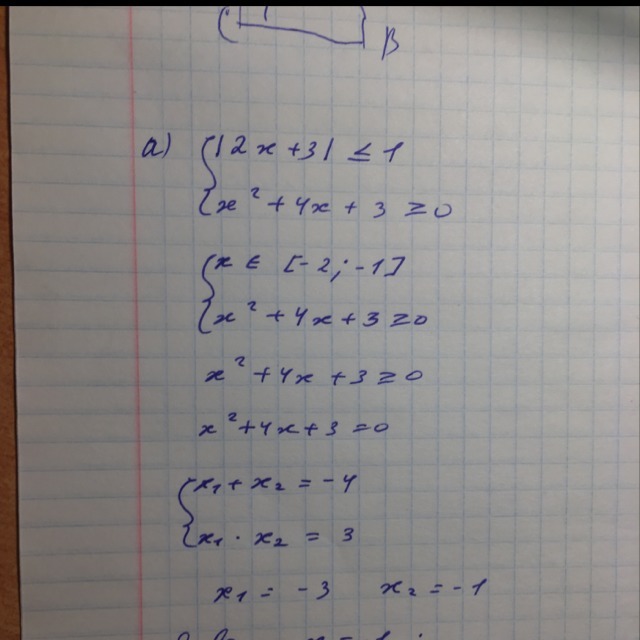 β
а) {|2x+3| ≤ 1
{x² + 4x + 3 ≥ 0
{x ∈ [-2; -1]
{x² + 4x + 3 ≥ 0
x² + 4x + 3 ≥ 0
x² + 4x + 3 = 0
{x₁ + x₂ = -4
{x₁ · x₂ = 3
x₁ = -3 x₂ = -1